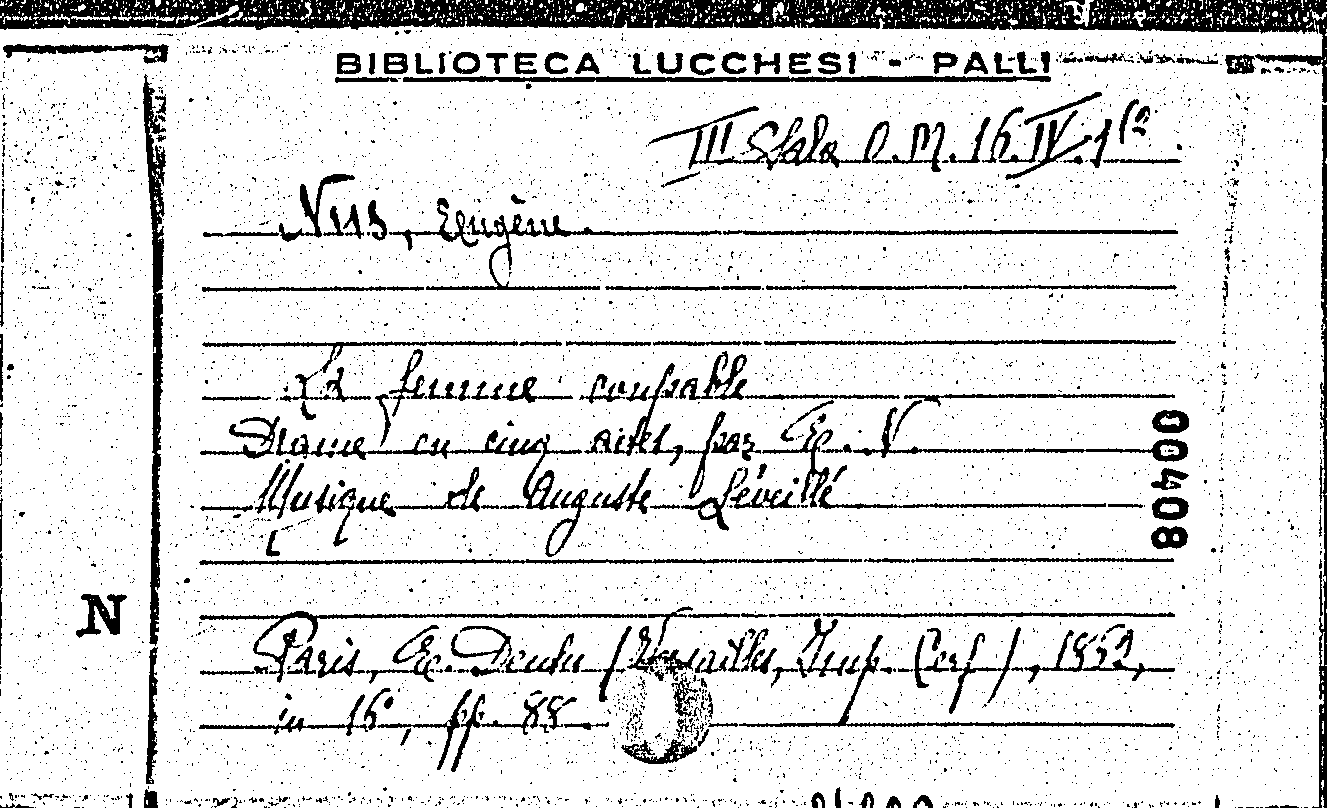 BIBLIOTECA LUCCHESI - PALLI
III Sala O. M. 16. IV. 1
Nus, Eugène.
La femme coupable
Drame en cinq actes, par E. N.
Musique de Auguste Léveillé
00408
N
Paris, E. Dentu (Versailles, Imp. Cerf),
in 16°, pp. 88.